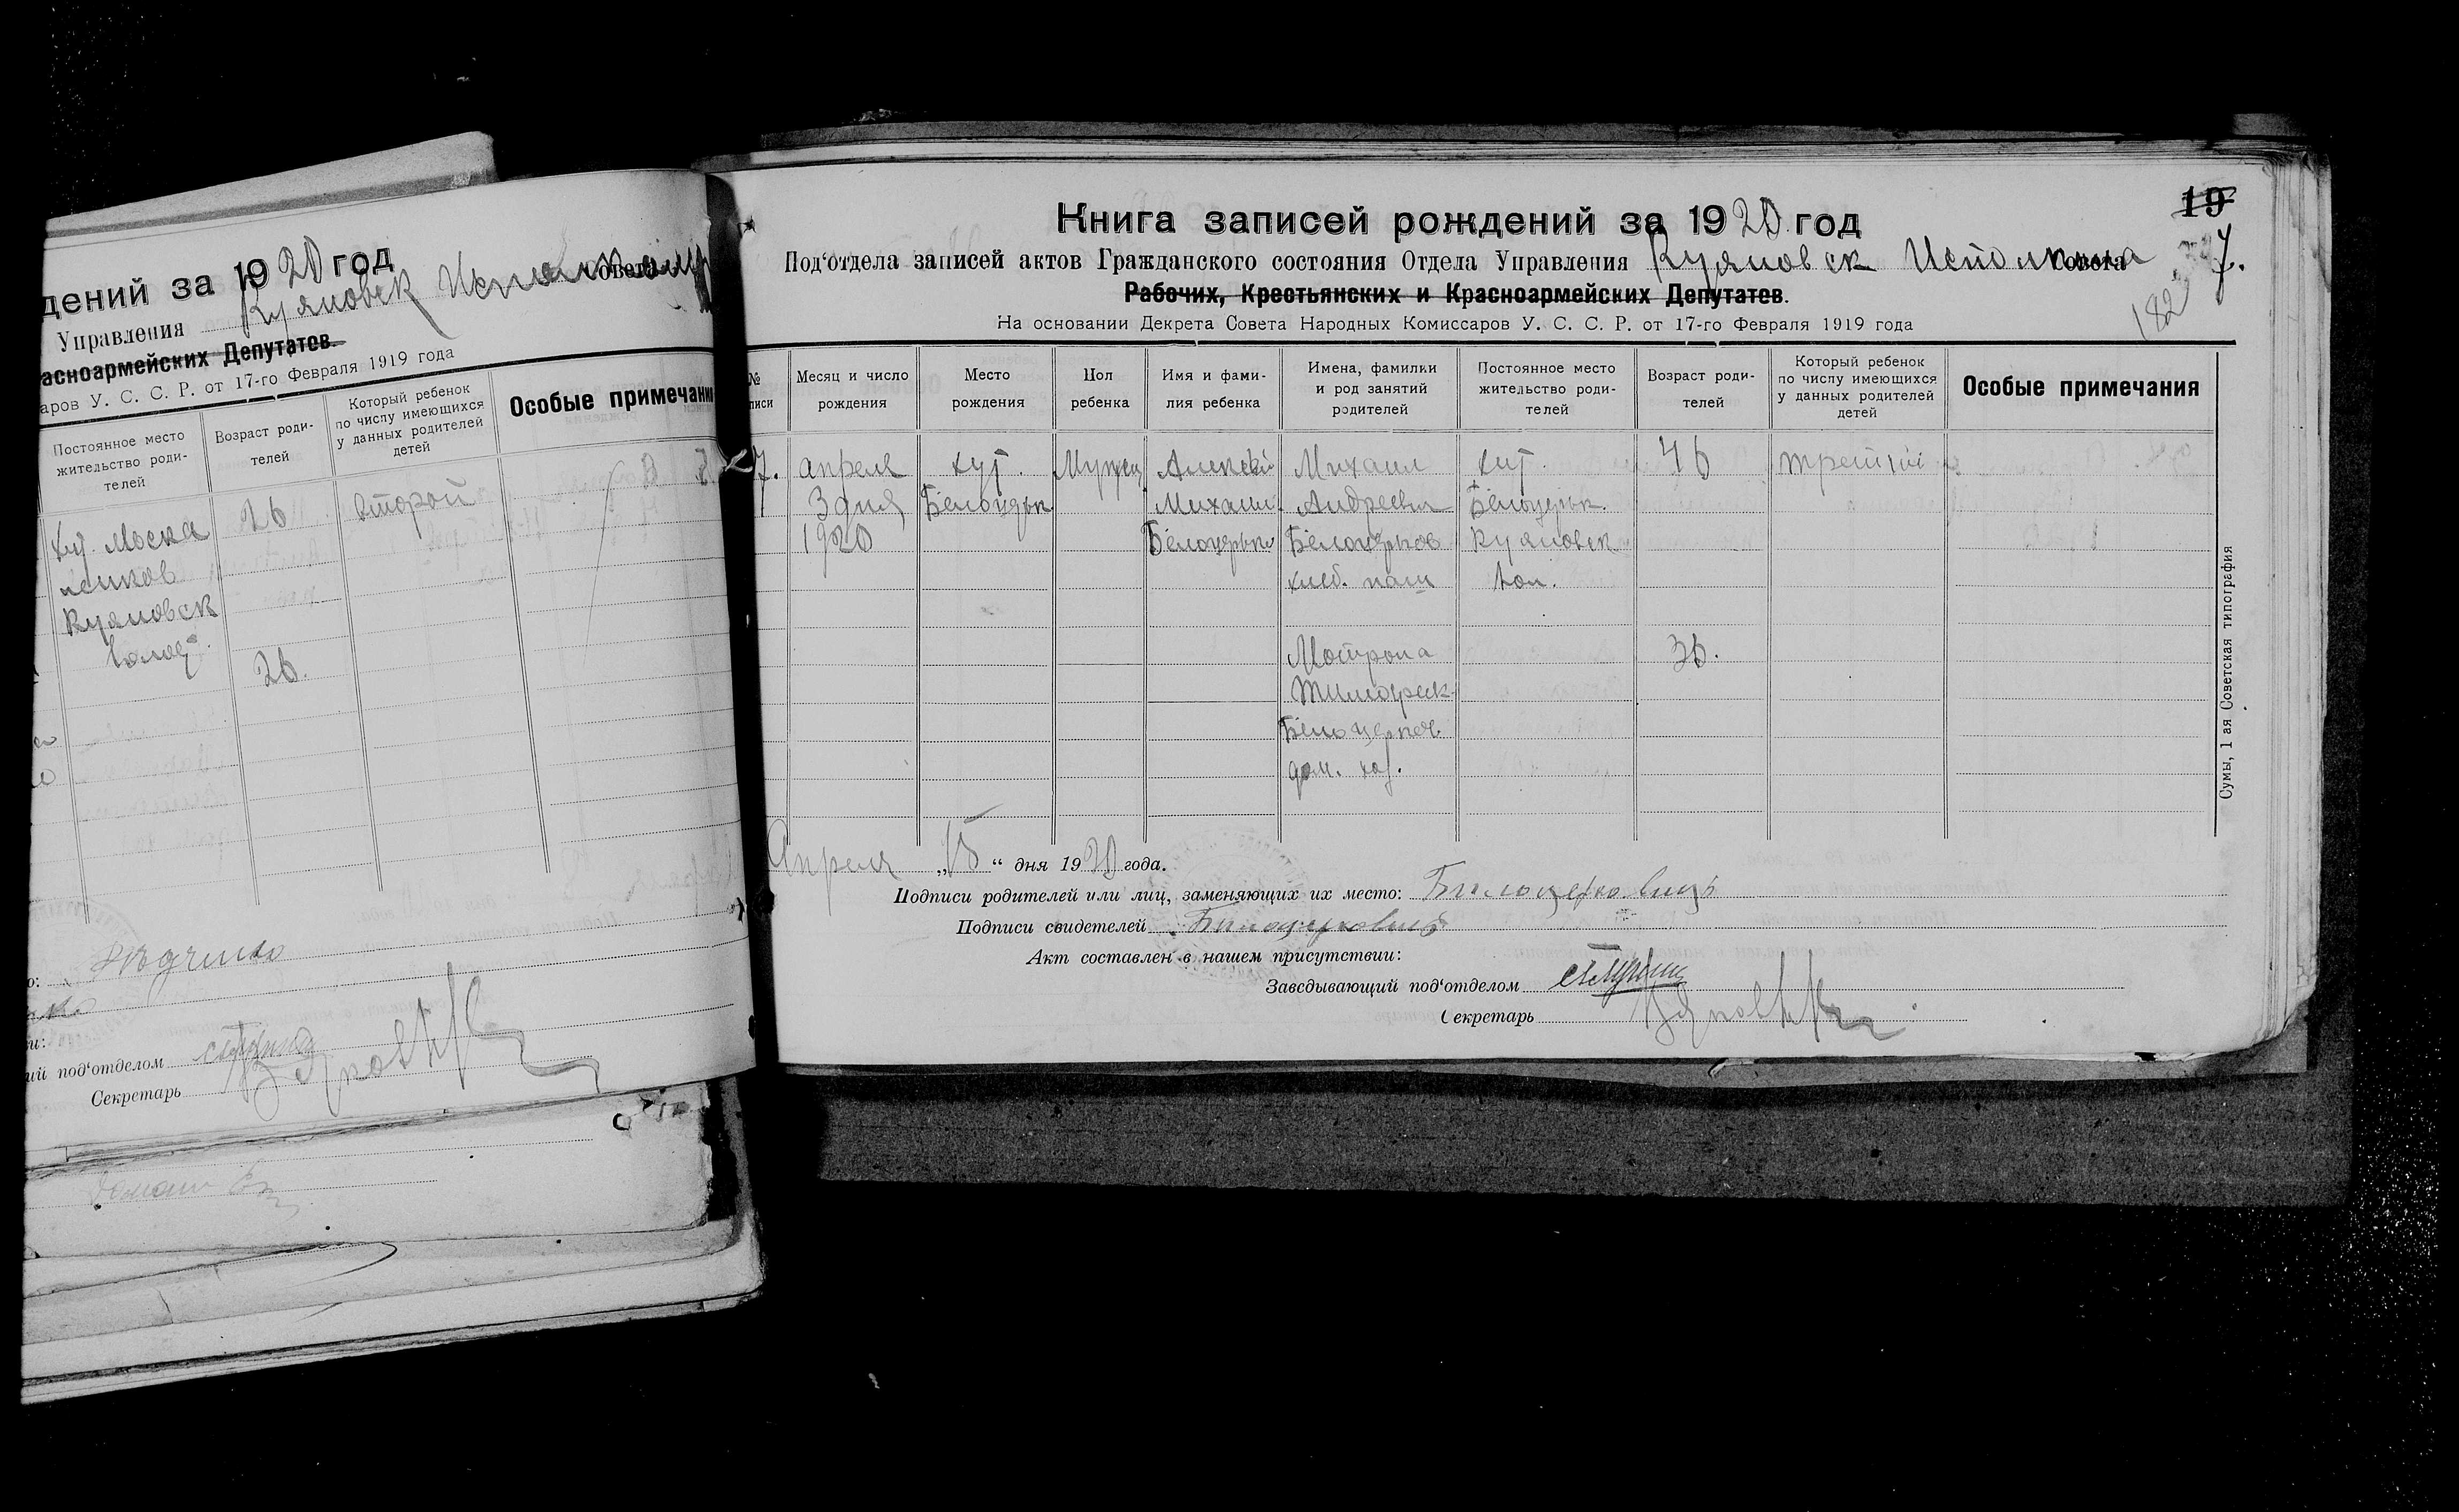 дений за 1920 год
Управления Куяновск Исполкома Совета
асноармейских Депутатов.
аров У. С. С. Р. от 17-го Февраля 1919 года
Постоянное место жительство роди-телей
Возраст роди-телей
Который ребенок по числу имеющихся у данных родителей детей
Особые примечани
хут. Моска
ленков
Куяновск
волост.
26
26.
второй
о:
ки:
ий под‘отделом
Секретарь
19
7.
182
Книга записей рождений за 1920 год
Под‘отдела записей актов Гражданского состояния Отдела Управления Куяновск Исполкома Совета
Рабочих, Крестьянских и Красноармейских Депутатов.
На основании Декрета Совета Народных Комиссаров У. С. С. Р. от 17-го Февраля 1919 года
№ писи
Месяц и число рождения
Место рождения
Пол ребенка
Имя и фами-лия ребенка
Имена, фамилки и род занятий родителей
Постоянное место жительство роди-телей
Возраст роди-телей
Который ребенок по числу имеющихся у данных родителей детей
Особые примечания
7.
апреля
3 дня
1920
хут.
Белоцерк
Мужск
Алексей
Михаил
Белоцерков
Михаил
Андреевич
Белоцерков
хлеб. паш
Мотрона
Тимофеев
Белоцерков.
дом. хоз.
хут.
Белоцерк.
Куяновск
вол.
46
36.
третий
Апреля „15“ дня 1920 года.
Подписи родителей или лиц, заменяющих их место: Билоцерковиць
Подписи свидетелей Билоцерковиць
Акт составлен в нашем присутствии:
Заведывающий под‘отделом
Секретарь
Сумы, 1 ая Советская типография